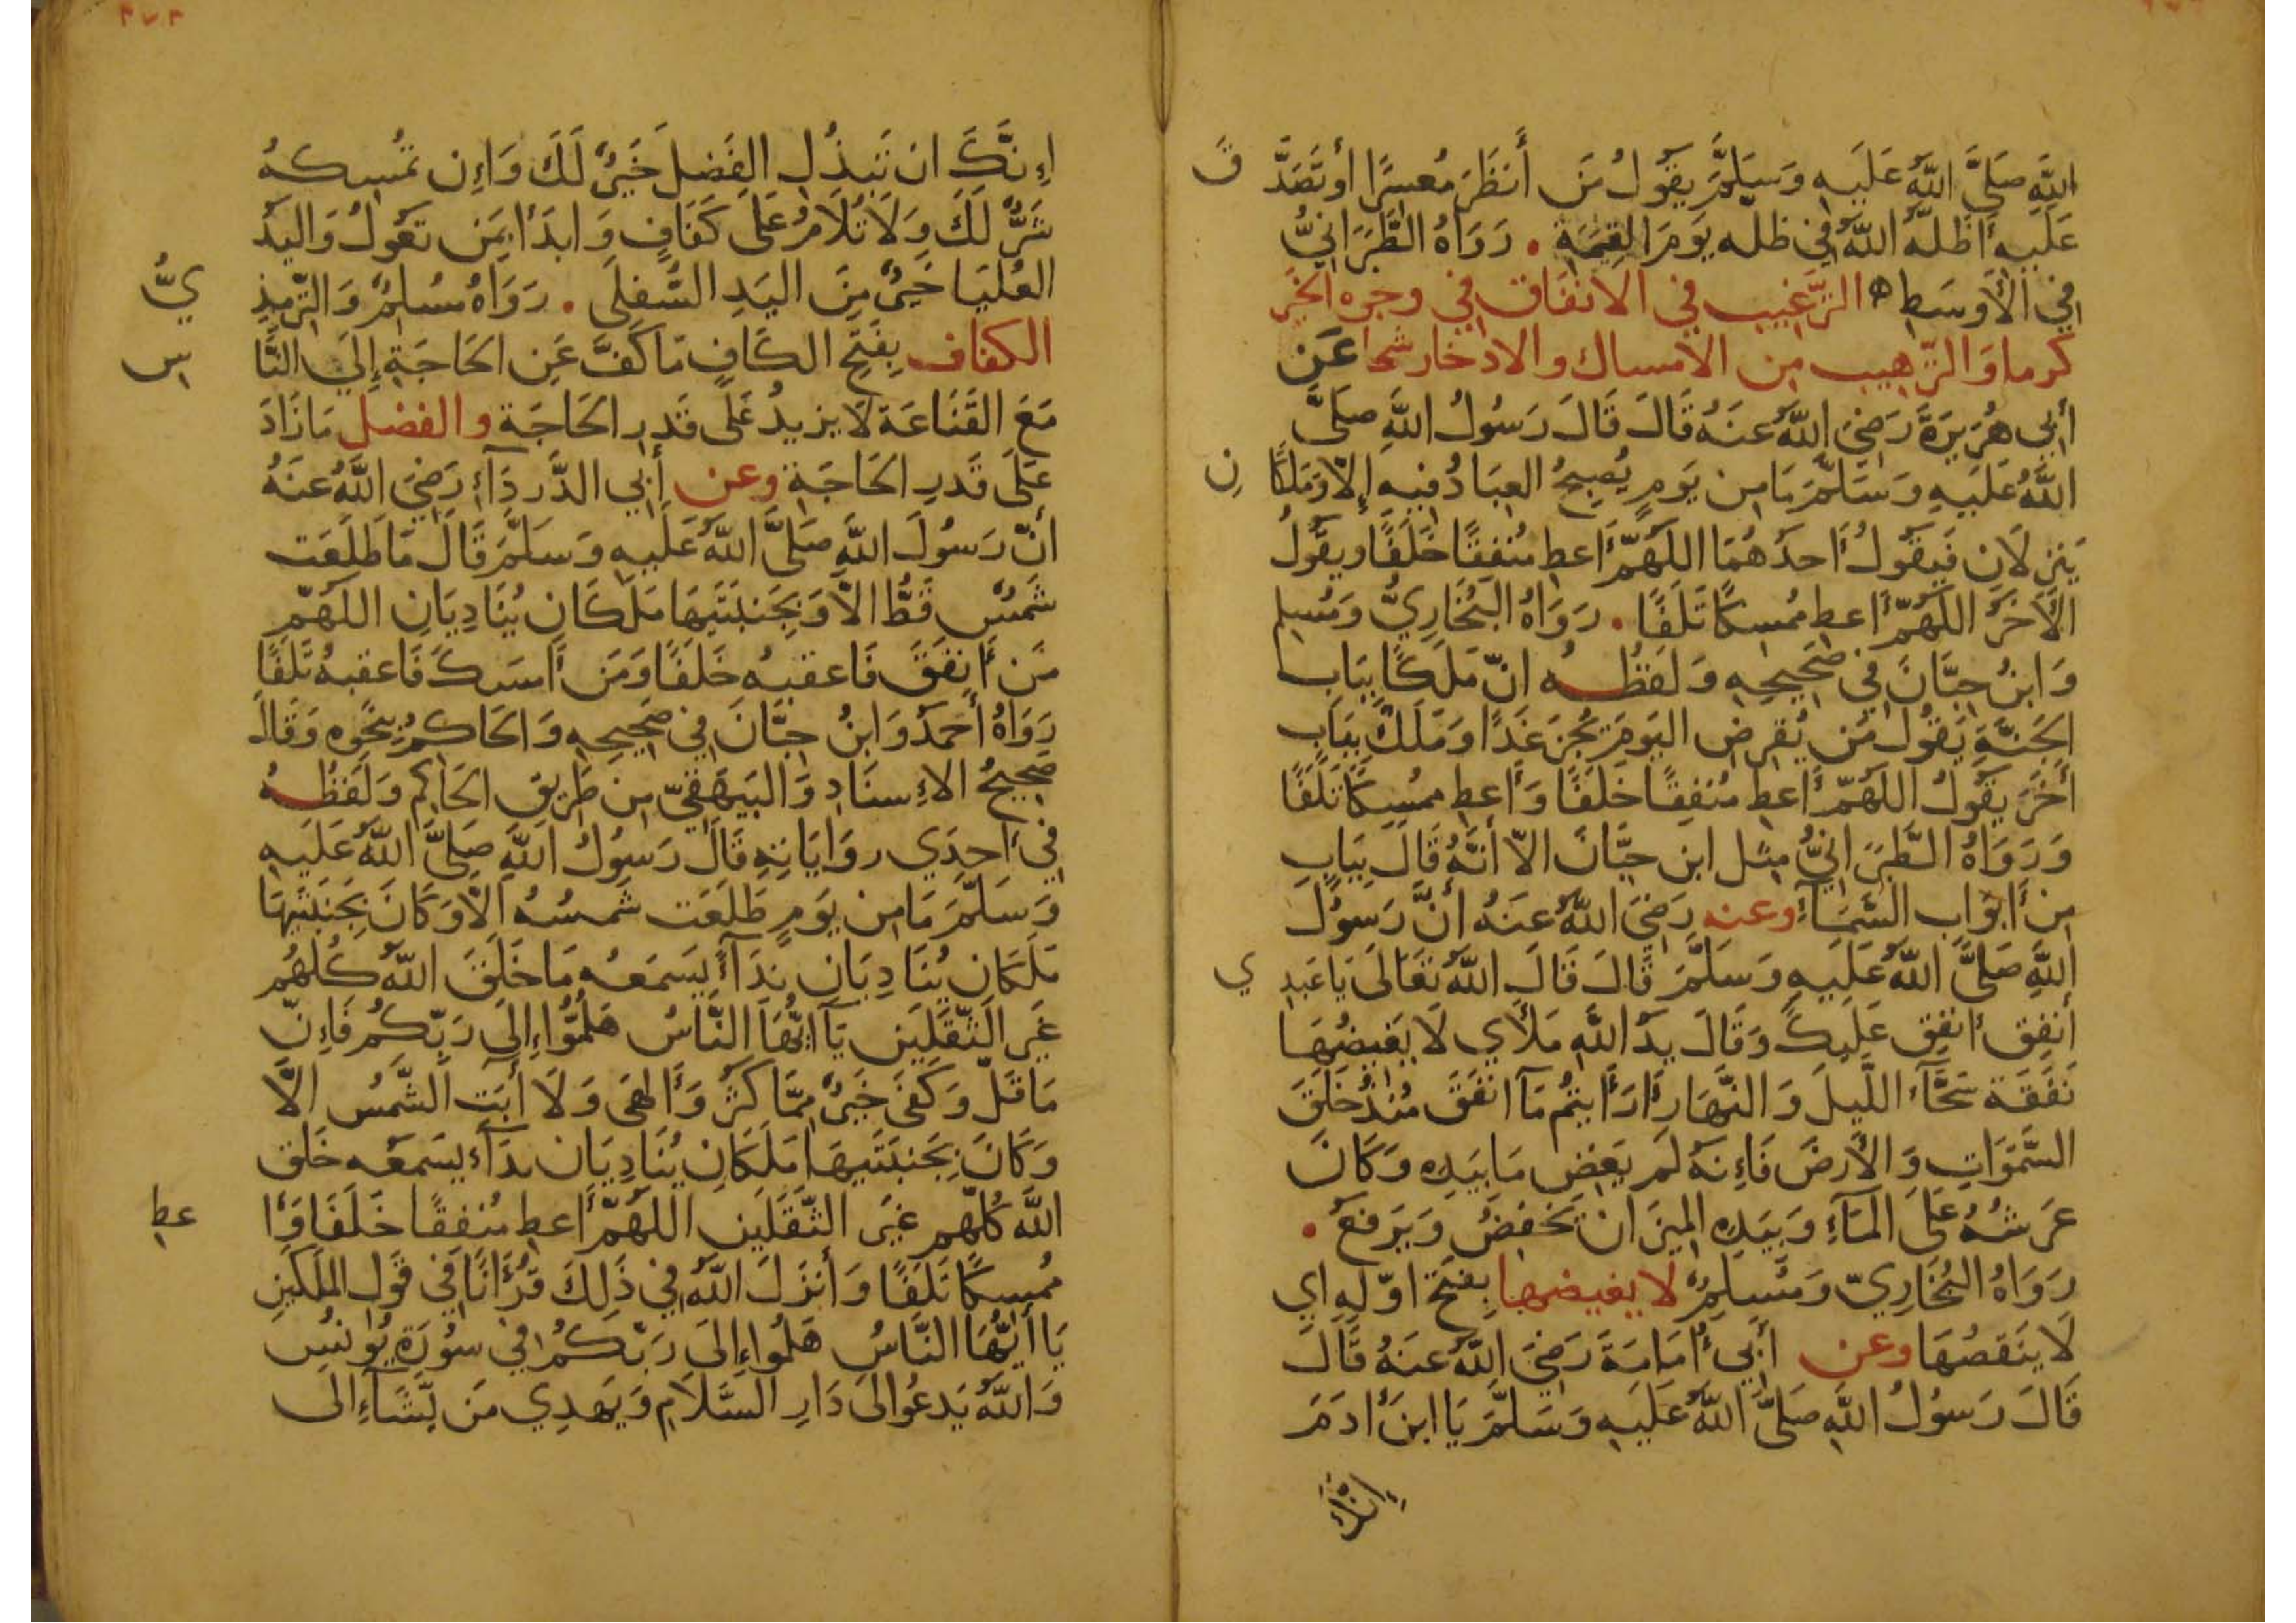 اللَّهِ صَلَّى اللَّهُ عَلَيهِ وَسَلَّمَ يَقُولُ مَن أَنظَرَ مُعسِرًا أَو تَصَدَّ قَ
عَلَيهِ أَظَلَّهُ اللَّهُ فِي ظِلِّه يَومَ القِيمَةِ . رَوَاهُ الطَّبَرَانِيُّ
فِي الأَوسَطِ ه الترَّغيب في الانفَاق في وجوه الخَير
كرما وَالترَّهيب من الامساك والادخار شحا عَن
أَبِي هُرَيرَةَ رَضِيَ اللَّهُ عَنهُ قَالَ قَالَ رَسُولُ اللَّهِ صَلَّى
اللَّهُ عَلَيهِ وَسَلَّمَ مَا مِن يَومٍ يُصبِحُ العِبَادُ فِيهِ إِلاّ وَمَلَكَا نِ
يَنزِلَانِ فَيَقُولُ أَحَدُهُمَا اللَّهُمَّ أَعطِ مُنفِقًا خَلَفًا وَيَقُولُ
الأَخَرُ اللَّهُمَّ أَعطِ مُمسِكًا تَلَفًا . رَوَاهُ البُخَارِيُّ وَمُسلِم
وَابنُ حِبَّانَ فِي صَحِيحِهِ وَلَفظُه انّ مَلَكًا بِبَابِ
الجَنَّةِ يَقُولُ مَن يُقرِضِ اليَومَ يُجزَ غَدًا وَمَلَكٌ بِبَابٍ
أَخَرَ يَقُولُ اللَّهُمَّ أَعطِ مُنفِقًا خَلَفًا وَأَعطِ مُمسِكًا تَلَفًا
وَرَوَاهُ الطَّبَرَانِيُّ مِثل ابن حِبَّانَ الاّ أَنَّهُ قَالَ بِبَابٍ
مِن أَبوَابِ السَّمَآءِ وعنه رَضِيَ اللَّهُ عَنهُ أَنَّ رَسُولَ
اللَّهِ صَلَّى اللَّهُ عَلَيهِ وَسَلَّمَ قَالَ قَالَ اللَّهُ تَعَالَى يَا عَبدِ ي
أَنفِق أُنفِق عَلَيكَ وَقَالَ يَدُ اللَّهِ مَلأَي لَا يَغِيضُهَا
نَفَقَة سَحَّآءُ اللَّيلَ وَالنَّهَارِ أَرَأَيتُم مَآ انفَقَ مُنذُ خَلَقَ
السَّمَوَاتِ وَالأَرضَ فَإِنَّهُ لَم يَغِض مَا بِيَدِهِ وَكَانَ
عَرشُهُ عَلَى المَآءِ وَبِيَدِهِ المِيزَانُ يَخفِضُ وَيَرفَعُ .
رَوَاهُ البُخَارِيّ وَمُسلِمٌ لا يغيضها بِفَتح اوّلِهِ اي
لَا يَنقصُهَا وعن أَبِي أُمَامَةَ رَضِيَ اللَّهُ عَنهُ قَالَ
قَالَ رَسُولُ اللَّهِ صَلَّى اللَّهُ عَلَيهِ وَسَلَّمَ يَا ابنَ أَدَمَ
إِنَّكَ
إِنَّكَ ان تَبذُلِ الفَضلَ خَيرٌ لَكَ وَإِن تُمسِكهُ
شَرٌّ لَكَ وَلَا تُلَامُ عَلَى كَفَافٍ وَابدَأ بِمَن تَعُولُ وَاليَدُ
العُليَا خَيرٌ مِنَ اليَدِ السُّفلَى . رَوَاهُ مُسلِمٌ وَالتِّرمِذِ يُّ
الكفاف بِفَتحِ الكَافِ مَا كَفَّ عَنِ الحَاجَةِ إِلَى النَّا سِ
مَعَ القَنَاعَة لَا يزيدُ عَلَى قَدرِ الحَاجَةِ والفضل مَا زَادَ
عَلَى قَدرِ الحَاجَةِ وعن أَبِي الدَّردَآءِ رَضِيَ اللَّهُ عَنهُ
أَنّ رَسُولَ اللَّهِ صَلَّى اللَّهُ عَلَيهِ وَسَلَّمَ قَالَ مَا طَلَعَت
شَمسٌ قَطُّ الاّ وَبِجَنبَتَيهَا مَلَكَانِ يُنَادِيَانِ اللَّهُمَّ
مَن أَنفَقَ فَاعقبهُ خَلَفًا وَمَن أَمسَكَ فَاعقبهُ تَلَفًا
رَوَاهُ أَحمَدُ وَابنُ حِبَّانَ فِي صَحِيحِهِ وَالحَاكِمُ بِنَحوِهِ وَقَالَ
صَحِيحُ الإِسنَادِ وَالبَيهَقِيّ مِن طَرِيقِ الحَاكِم وَلَفظُهُ
فِي أَحِدَي رِوَايَاتِهِ قَالَ رَسُولُ اللَّهِ صَلَّى اللَّهُ عَلَيهِ
وَسَلَّمَ مَا مِن يَومٍ طَلَعَت شَمسُهُ الاّ وَكَانَ بِجَنبَتَيهَا
مَلَكَانِ يُنَادِيَانِ نِدَآءً يَسمَعُه مَا خَلَقَ اللَّهُ كُلُّهُم
غَيرَ الثَّقَلَينِ يَآ ايُّهَا النَّاسُ هَلُمُّوا إِلَى رَبِّكُم فَإِنّ
مَا قَلّ وَكَفَى خَيرٌ مِمَّا كَثُرَ وَأَلهَى وَلَا أَبَت الشَّمسُ الَّا
وَكَانَ بِجَنبَتَيهَا مَلَكَانِ يُنَادِيَان نِدَآء يسَمعُه خَلق
اللَّهِ كُلّهم غَيرَ الثَّقَلَينِ اللَّهُمَّ أَعطِ مُنفِقًا خَلَفًا وَأَ عطِ
مُمسِكًا تَلَفًا وَأَنزَلَ اللَّهُ فِي ذَلِكَ قُرأَنًا فِي قَولِ المَلَكَينِ
يَا أَيُّهَا النَّاسُ هَلُمُّوا إِلَى رَبِّكُم فِي سُورَةِ يُونُسَ
وَاللَّهُ يَدعُوا الَى دَارِ السَّلَامِ وَيَهدِي مَن يَشَآءُ الَى